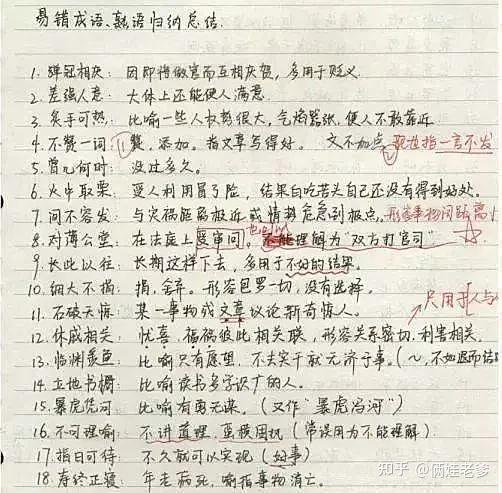 易错成语、熟语归纳总结
1. 弹冠相庆: 因即将做官而互相庆贺，多用于贬义
2. 差强人意: 大体上还能使人满意.
3. 炙手可热: 比喻一些人权势很大，气焰嚣张，使人不敢靠近
4. 不赞一词: ①赞，添加。指文章写得好. 文不加点 ②现在指一言不发
5. 曾几何时: 没过多久。
6. 火中取栗: 受人利用冒了险，结果白吃苦头自己还没有得到好处。
7. 间不容发: 与灾祸距离极近或情势危急到极点。形容事物间距离小
8. 对薄公堂: 在法庭上受审问。也可以理解为“双方打官司”
9. 长此以往: 长期这样下去，多用于不如的结果。
10. 细大不捐: 捐，舍弃。形容包罗一切，没有选择。
11. 石破天惊: 某一事物或文章议论新奇惊人。
只用于人与
12. 休戚相关: 忧喜、福祸彼此相关联，形容关系密切，利害相关。
13. 临渊羡鱼: 比喻只有愿望，不去实干就无济于事。(～，不如退而结
14. 立地书橱: 比喻读书多学识广的人。
15. 暴虎凭河: 比喻有勇无谋。(又作“暴虎冯河”)
16. 不可理喻: 不讲道理，蛮横固执(常误用为不能理解)
17. 指日可待: 不久就可以实现(好事)
18. 寿终正寝: 年老病死，喻指事物消亡。
知乎 @俩娃老爹